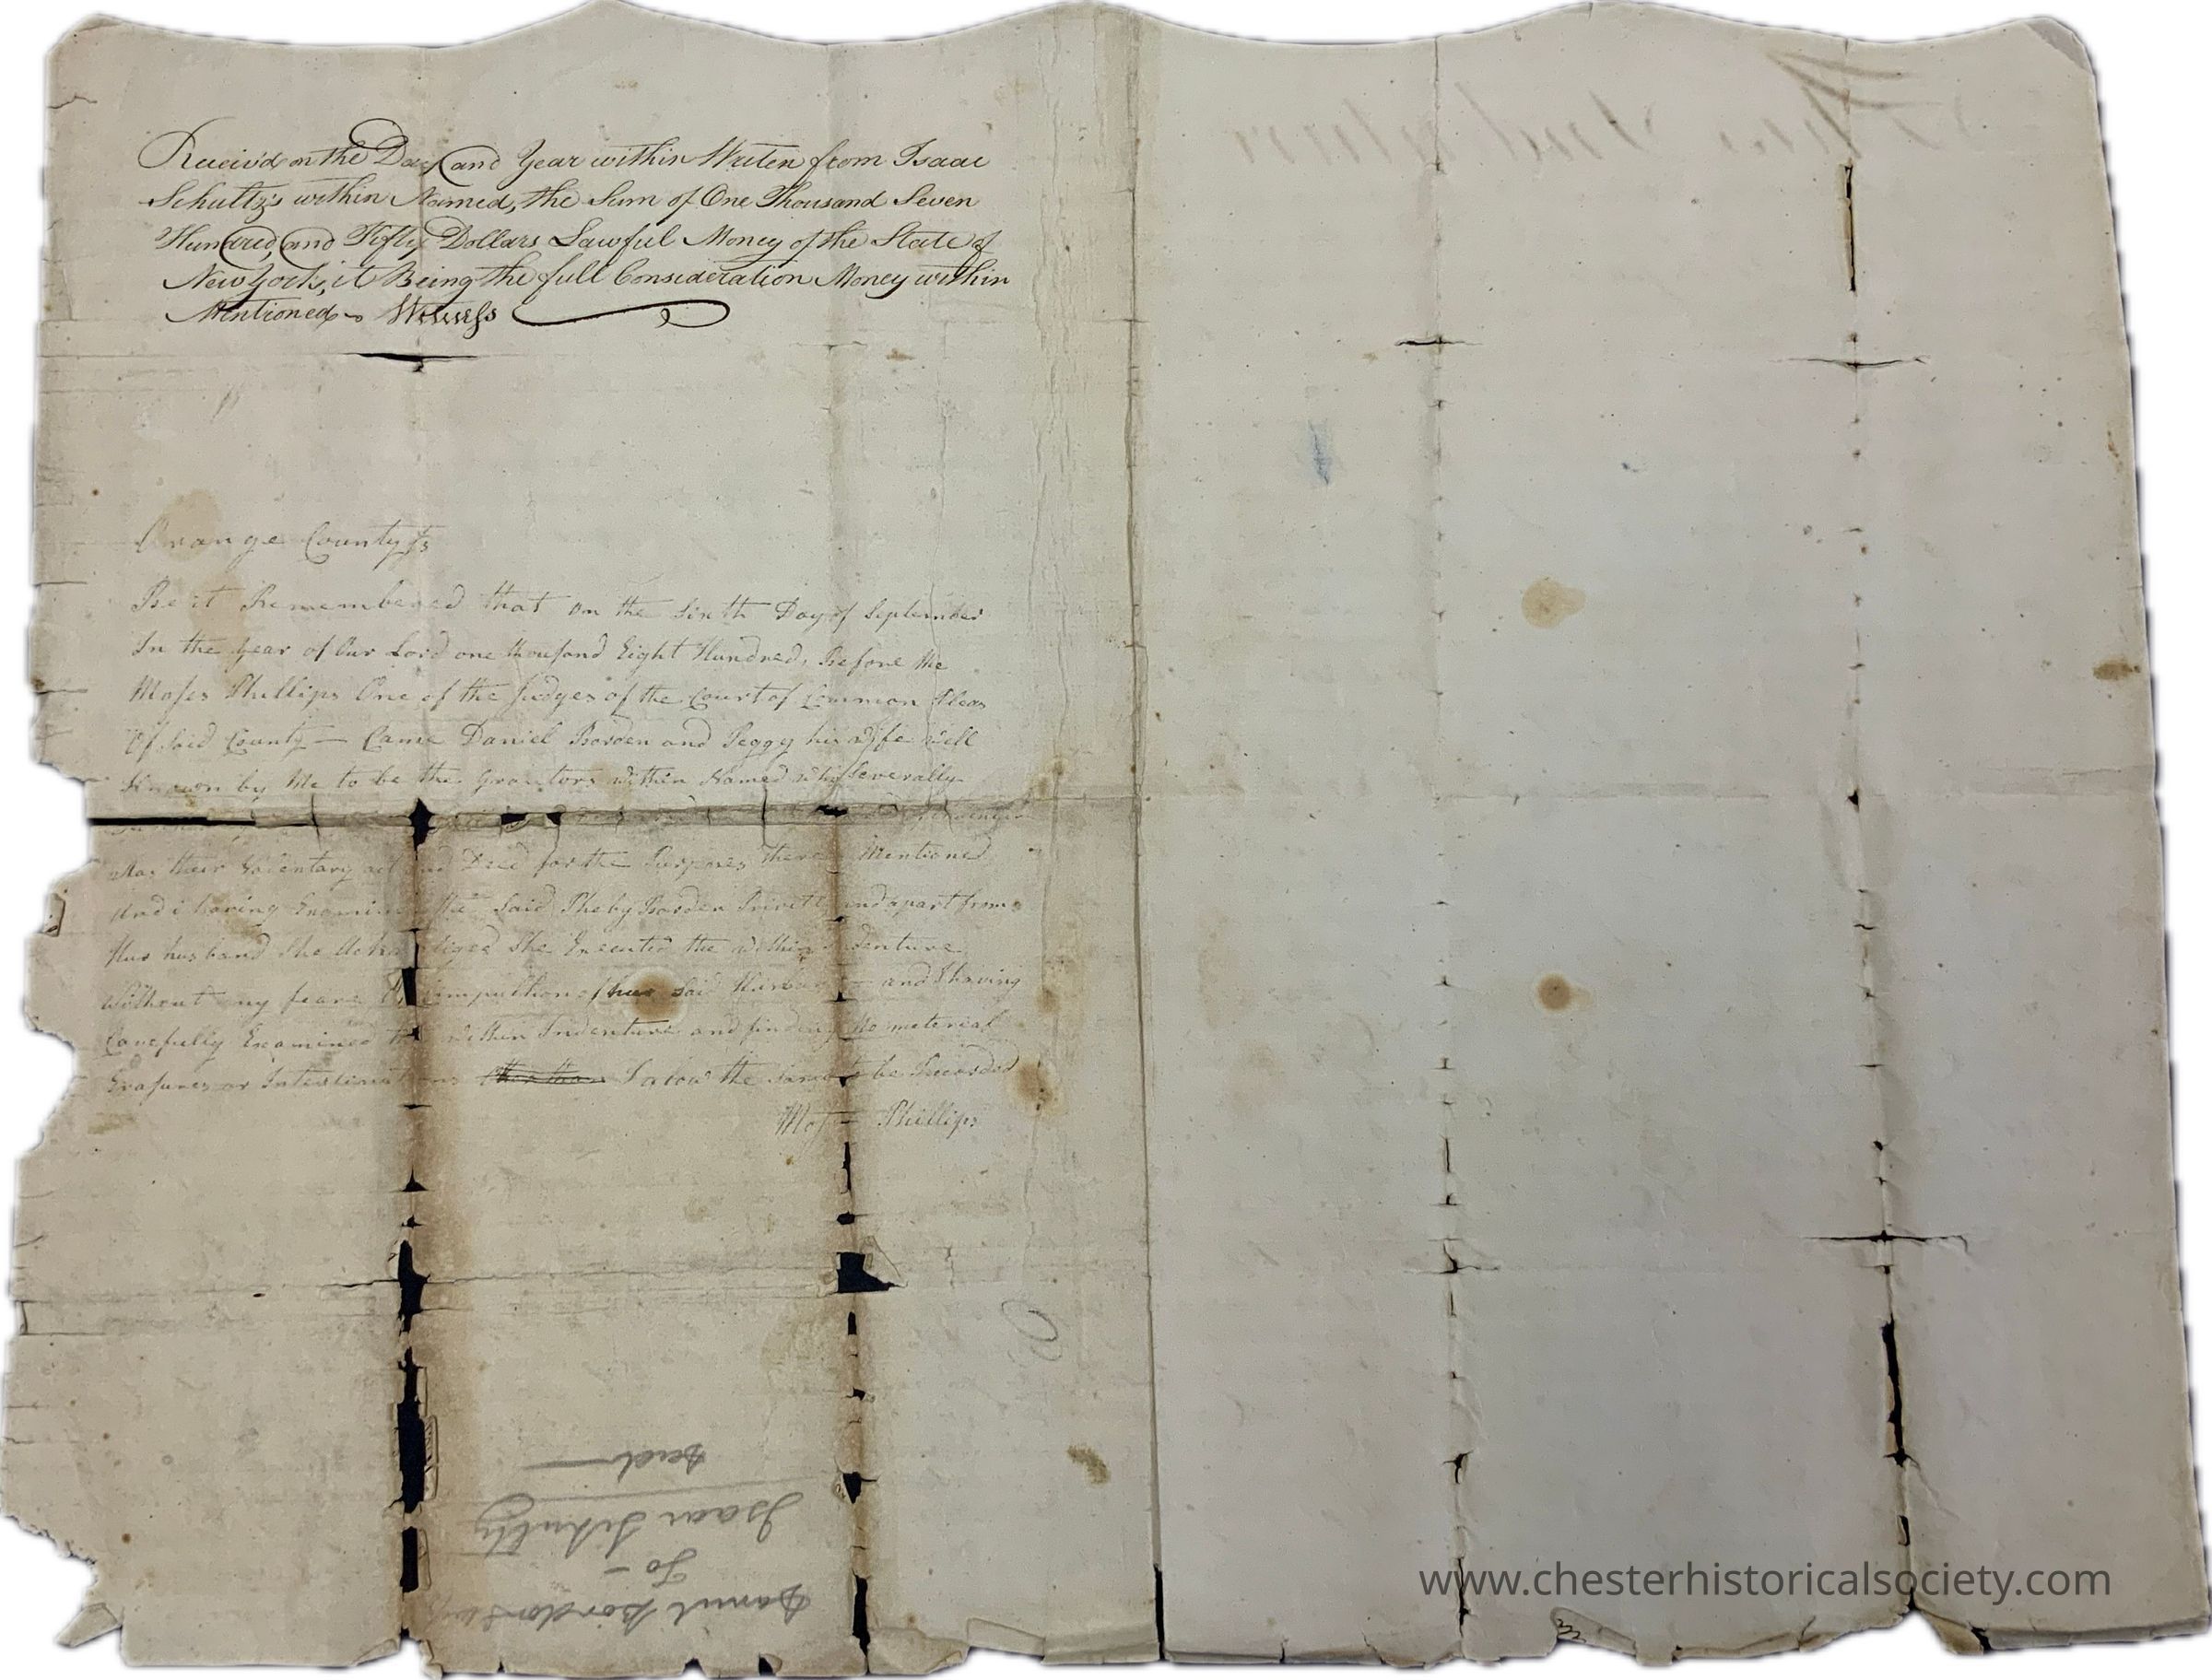 Receiv'd on the Day and Year within Writen from Isaac
Schultz's within Named, the Sum of One Thousand Seven
Hundred, and Fifty Dollars Lawful Money of the State of
New York, it Being the full Consideration Money within
Mentioned Witness
Orange County ss
Be it Remembered that on the Sixth Day of September
In the year of Our Lord one thousand Eight Hundred, Before Me
Moses Phillips One of the Judges of the Court of Common Pleas
Of Said County — Came Daniel Borden and Peggy his wife Well
Known by Me to be the Grantors within Named who Severally
Was their Volentary act and Deed for the Purposes there Mentioned
And i having Examin the Said Pheby Borden Privett and apart from
Hur husband She She Executed the within denture
Without any feare Or Compulthon of hur Said Husba — and I having
Carefully Examined the within Indenture and finding No meterial
Erasures or Interlinations other than I alow the Same to be Recorded
Mos Phillips
Daniel Borden
To —
Isaac Schultz
Deed
This Indenture
www.chesterhistoricalsociety.com